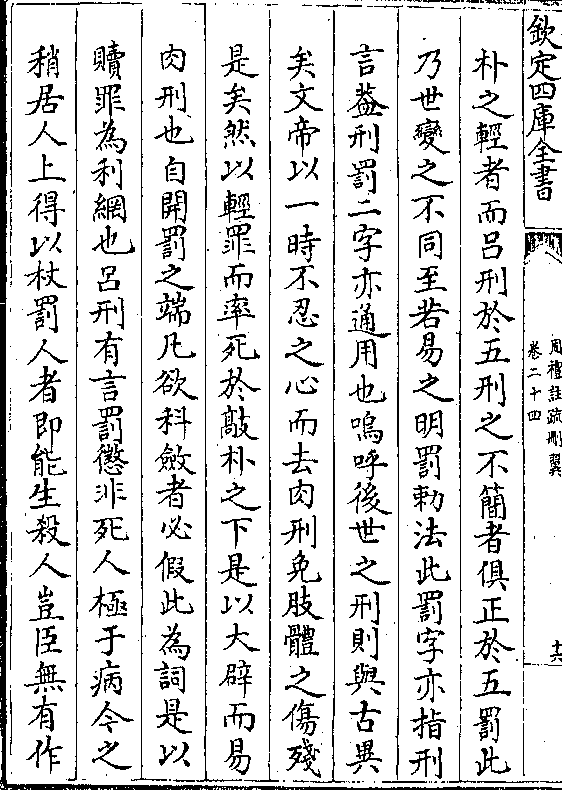 欽定四庫全書
周禮註疏刪翼
卷二十四
十六
朴之輕者而呂刑於五刑之不簡者俱正於五罰此
乃世變之不同至若易之明罰勅法此罰字亦指刑
言葢刑罰二字亦通用也嗚呼後世之刑則與古異
矣文帝以一時不忍之心而去肉刑免肢體之傷殘
是矣然以輕罪而率死於敲朴之下是以大辟而易
肉刑也自開罰之端凡欲科斂者必假此為詞是以
贖罪為利網也呂刑有言罰懲非死人極于病今之
稍居人上得以杖罰人者即能生殺人豈臣無有作